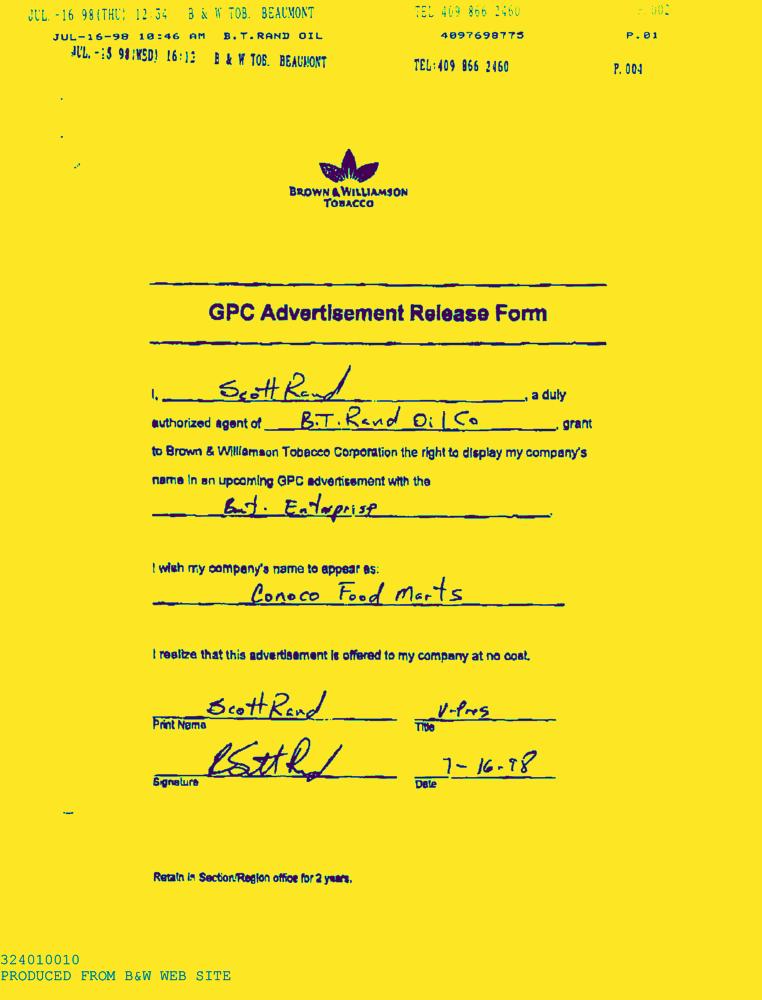 JUL -16 98(THU) 12:34 B & W TOB. BEAUMONT TEL 409 866 2460 P. 002
JUL-16-98 10:46 AM B.T.RAND OIL 4097698775 P.01
JUL. -15 98(WED) 16:13 B & W TOB. BEAUMONT TEL:409 866 2460 P. 004
BROWN & WILLIAMSON
TOBACCO
GPC Advertisement Release Form
I, Scott Rand, a duly
authorized agent of B.T. Rand Oil Co, grant
to Brown & Williamson Tobacco Corporation the right to display my company's
name in an upcoming GPC advertisement with the
Enterprise
I wish my company's name to appear as:
Conoco Food Marts
I realize that this advertisement is offered to my company at no cost.
Scott Rand V-Pres
Print Name Title
7-16-98
Signature Date
Retain in Section/Region office for 2 years.
324010010
PRODUCED FROM B&W WEB SITE